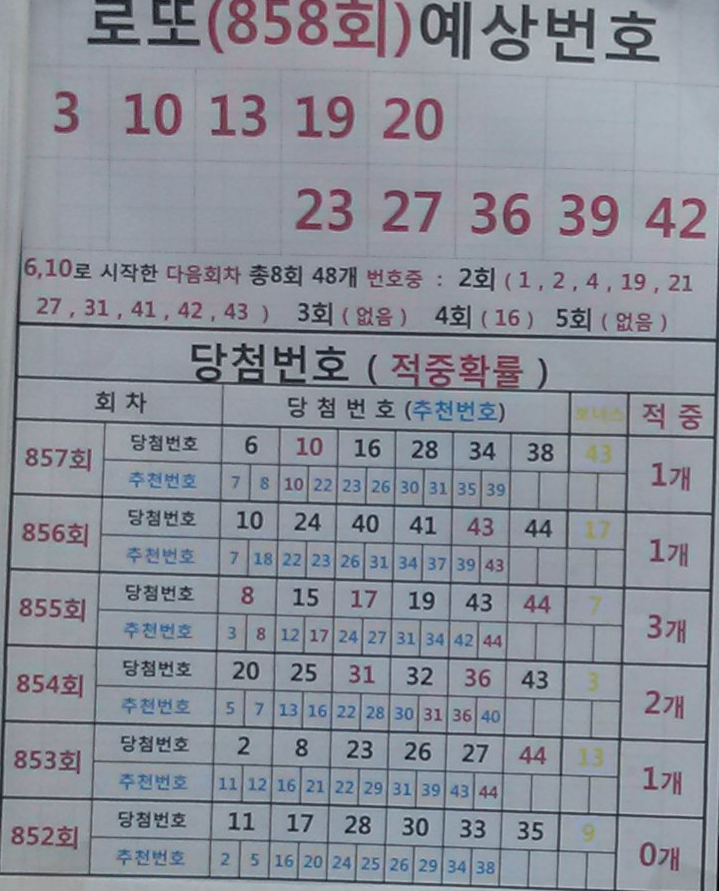 로또(858회)예상번호
3 10 13 19 20
23 27 36 39 42
6,10로 시작한 다음회차 총8회 48개 번호중 : 2회 ( 1 , 2 , 4 , 19 , 21
27 , 31 , 41 , 42 , 43 ) 3회 ( 없음 ) 4회 ( 16 ) 5회 ( 없음 )
당첨번호 ( 적중확률 )
회 차 당 첨 번 호 (추천번호) 보너스 적 중
857회 당첨번호 6 10 16 28 34 38 43 1개
추천번호 7 8 10 22 23 26 30 31 35 39
856회 당첨번호 10 24 40 41 43 44 17 1개
추천번호 7 18 22 23 26 31 34 37 39 43
855회 당첨번호 8 15 17 19 43 44 7 3개
추천번호 3 8 12 17 24 27 31 34 42 44
854회 당첨번호 20 25 31 32 36 43 3 2개
추천번호 5 7 13 16 22 28 30 31 36 40
853회 당첨번호 2 8 23 26 27 44 13 1개
추천번호 11 12 16 21 22 29 31 39 43 44
852회 당첨번호 11 17 28 30 33 35 9 0개
추천번호 2 5 16 20 24 25 26 29 34 38